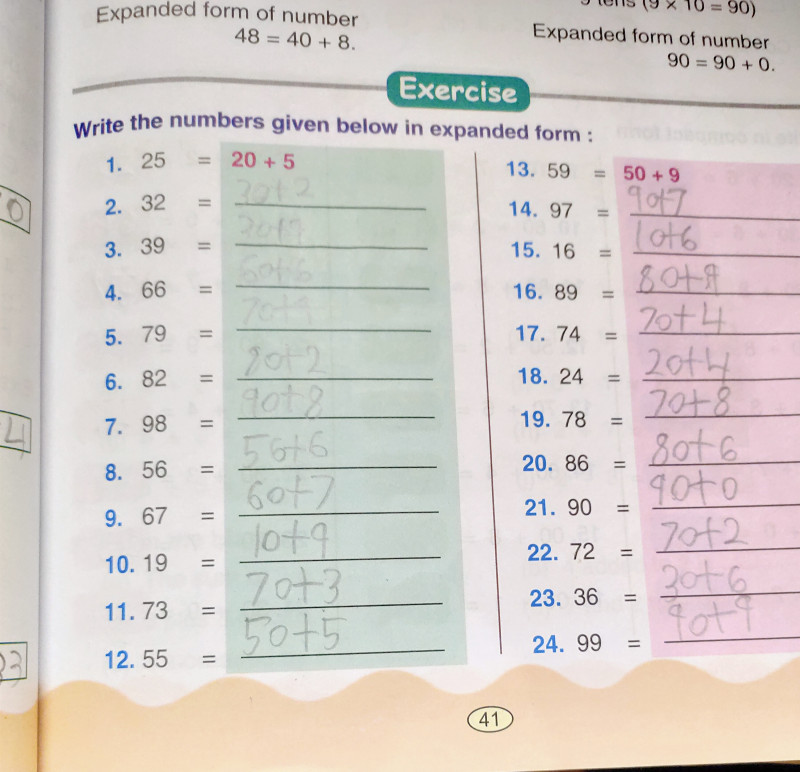 Expanded form of number
48 = 40 + 8.
9 tens (9 × 10 = 90)
Expanded form of number
90 = 90 + 0.
Exercise
Write the numbers given below in expanded form :
1. 25 = 20 + 5
2. 32 = 30+2
3. 39 = 30+9
4. 66 = 60+6
5. 79 = 70+9
6. 82 = 80+2
7. 98 = 90+8
8. 56 = 50+6
9. 67 = 60+7
10. 19 = 10+9
11. 73 = 70+3
12. 55 = 50+5
13. 59 = 50 + 9
14. 97 = 90+7
15. 16 = 10+6
16. 89 = 80+9
17. 74 = 70+4
18. 24 = 20+4
19. 78 = 70+8
20. 86 = 80+6
21. 90 = 90+0
22. 72 = 70+2
23. 36 = 30+6
24. 99 = 90+9
41